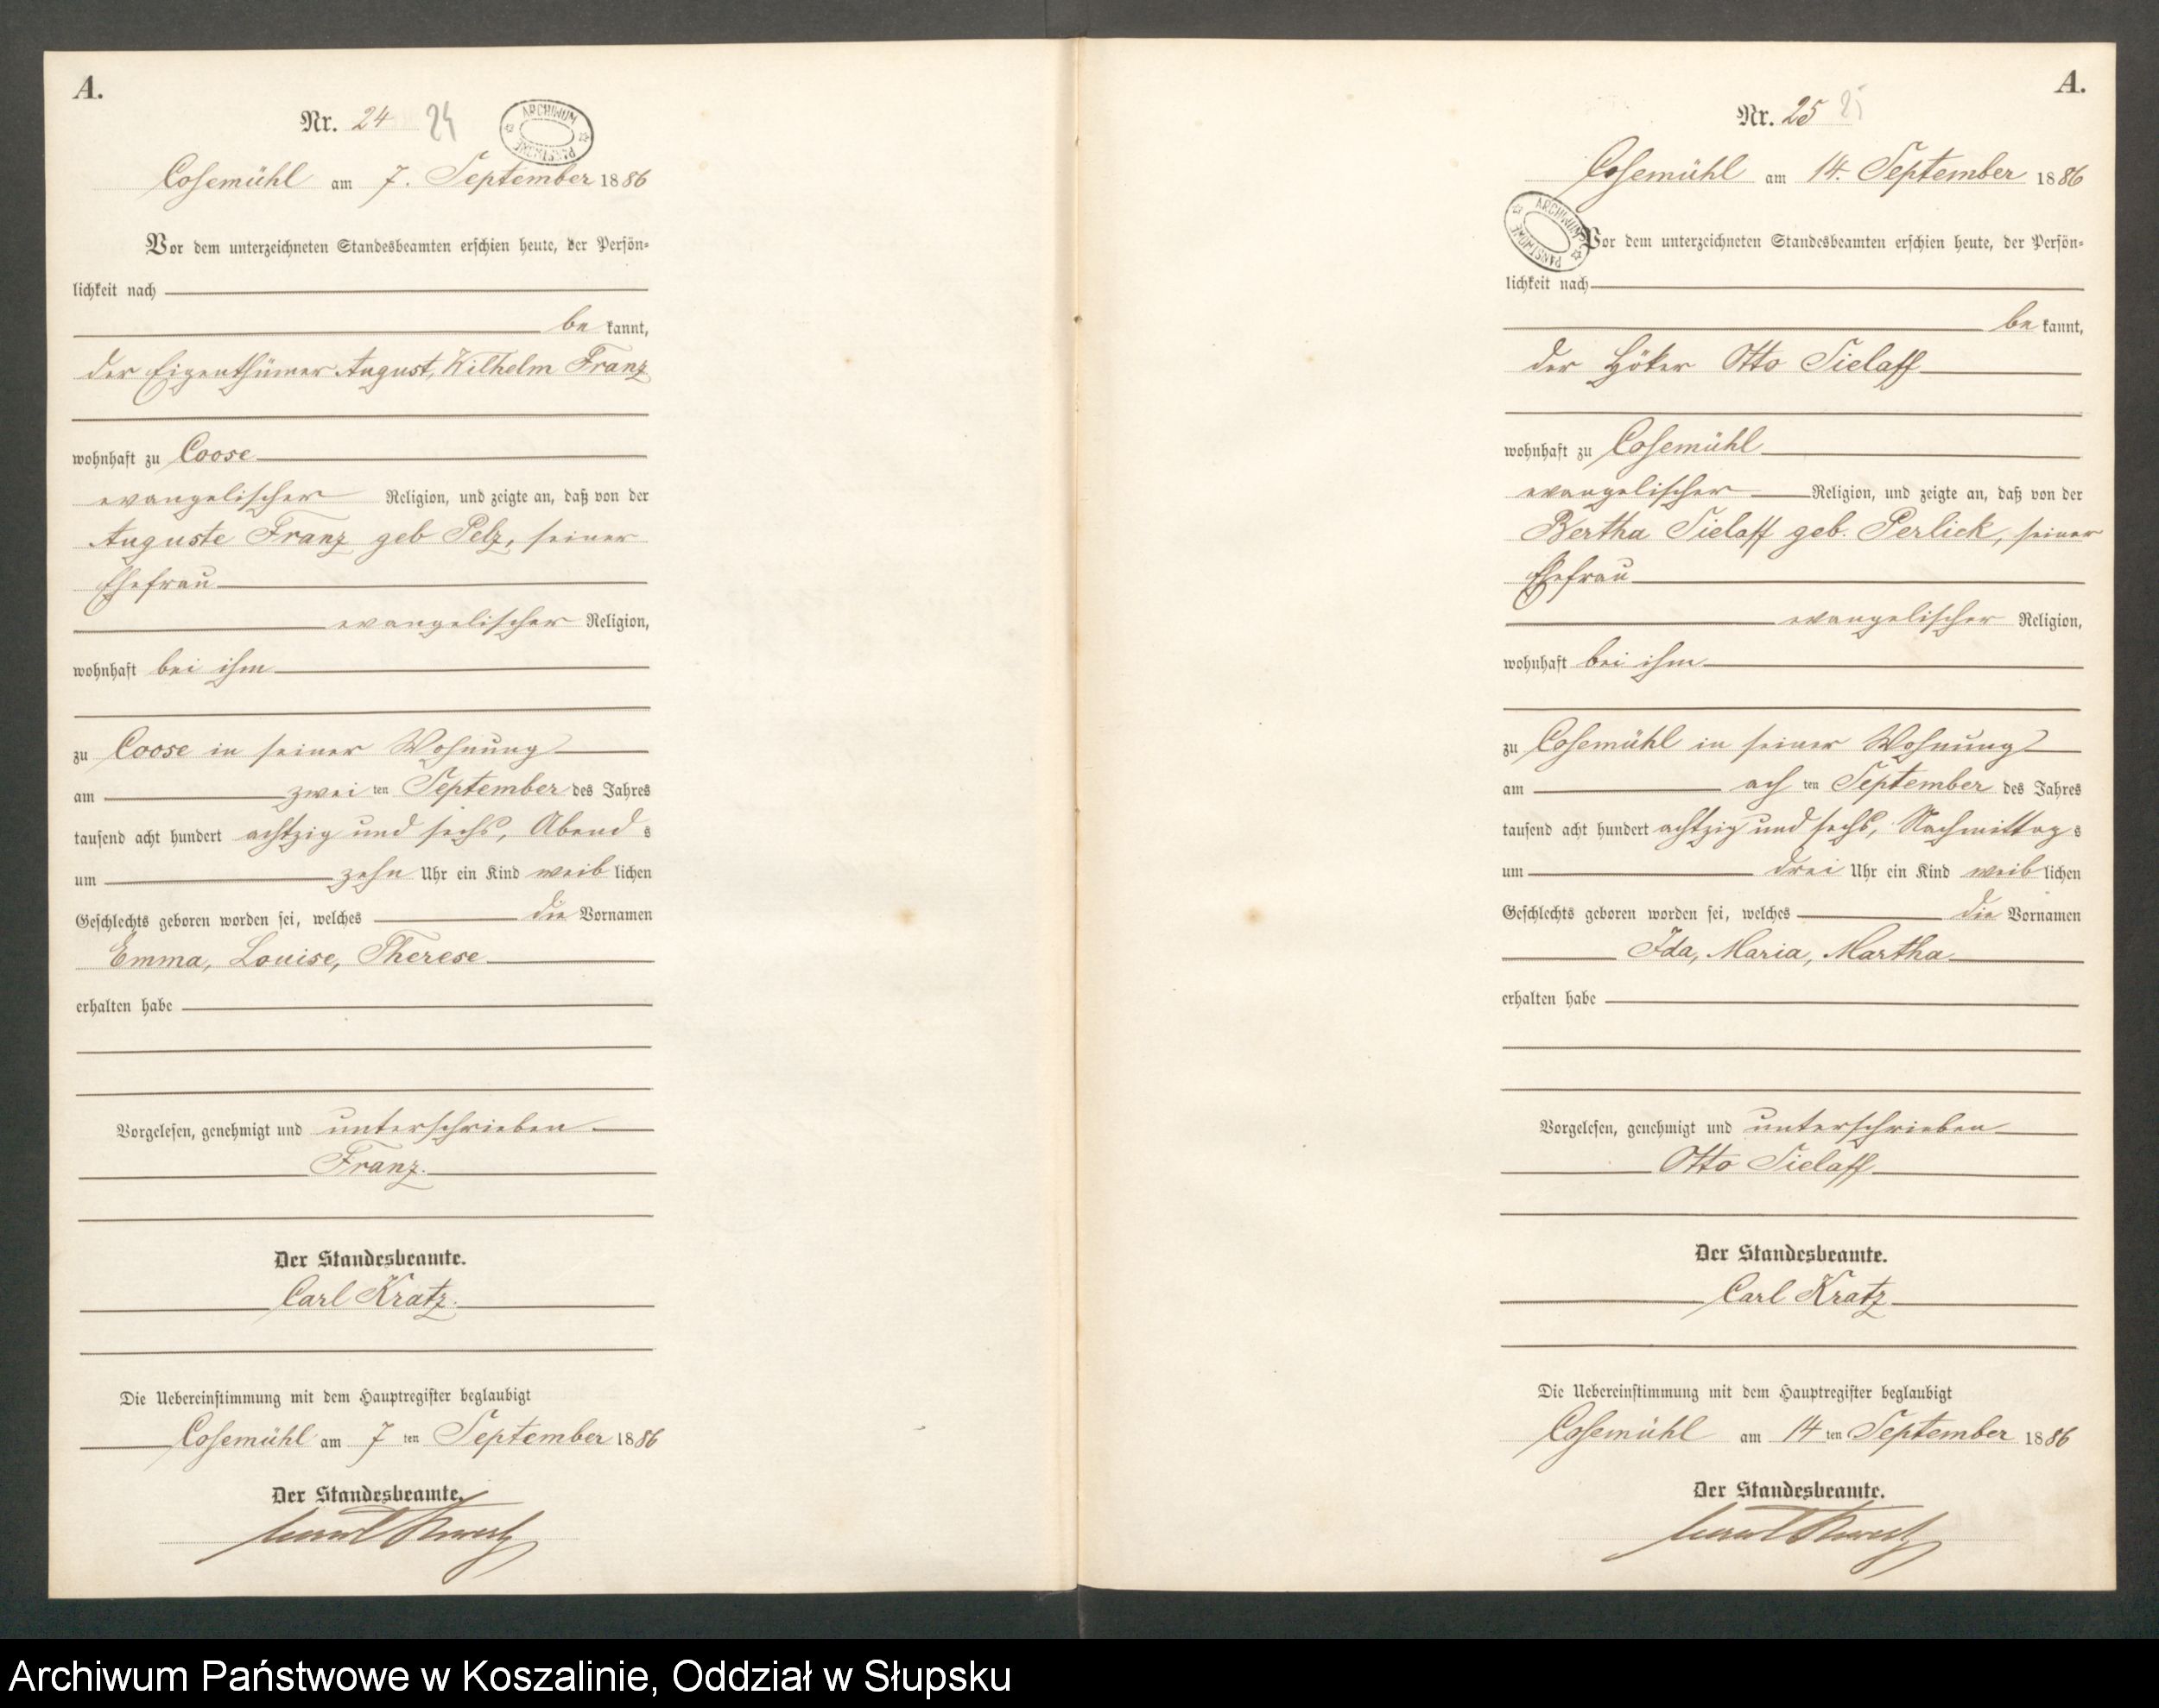 A.
Nr. 24 24
ARCHIWUM PAŃSTWOWE
Cosemühl am 7. September 1886
Vor dem unterzeichneten Standesbeamten erschien heute, der Persön-
lichkeit nach
be kannt,
der Eigenthümer August, Wilhelm Franz
wohnhaft zu Coose
evangelischer Religion, und zeigte an, daß von der
Auguste Franz geb Pelz, seiner
Ehefrau
evangelischer Religion,
wohnhaft bei ihm
zu Coose in seiner Wohnung
am zwei ten September des Jahres
tausend acht hundert achtzig und sechs, Abend s
um zehn Uhr ein Kind weib lichen
Geschlechts geboren worden sei, welches die Vornamen
Emma, Louise, Therese
erhalten habe
Vorgelesen, genehmigt und unterschrieben
Franz.
Der Standesbeamte.
Carl Kratz.
Die Uebereinstimmung mit dem Hauptregister beglaubigt
Cosemühl am 7 ten September 1886
Der Standesbeamte.
A.
Nr. 25 25
Cosemühl am 14. September 1886
ARCHIWUM PAŃSTWOWE
Vor dem unterzeichneten Standesbeamten erschien heute, der Persön-
lichkeit nach
be kannt,
der Höker Otto Sielaff
wohnhaft zu Cosemühl
evangelischer Religion, und zeigte an, daß von der
Bertha Sielaff geb. Perlick, seiner
Ehefrau
evangelischer Religion,
wohnhaft bei ihm
zu Cosemühl in seiner Wohnung
am ach ten September des Jahres
tausend acht hundert achtzig und sechs, Nachmittag s
um drei Uhr ein Kind weib lichen
Geschlechts geboren worden sei, welches die Vornamen
Ida, Maria, Martha
erhalten habe
Vorgelesen, genehmigt und unterschrieben
Otto Sielaff
Der Standesbeamte.
Carl Kratz
Die Uebereinstimmung mit dem Hauptregister beglaubigt
Cosemühl am 14 ten September 1886
Der Standesbeamte.
Archiwum Państwowe w Koszalinie, Oddział w Słupsku